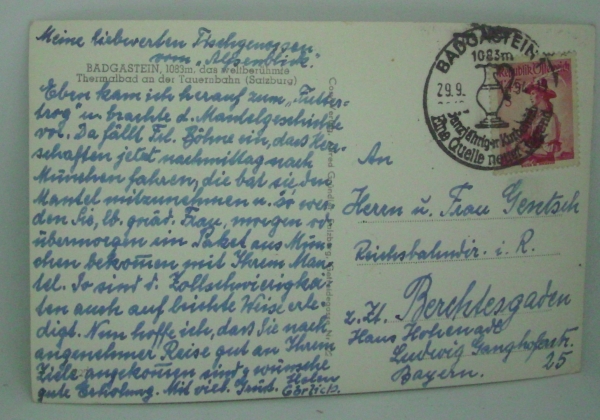 Meine liebwerten Tischgenossen
vom „Alpenblick“.
BADGASTEIN, 1083m, das weltberühmte
Thermalbad an der Tauernbahn (Salzburg)
Eben kam ich herauf zum „Futter-
trog“ u. brachte d. Mantelgeschichte
vor. Da fällt Frl. Böhne ein, dass Her-
schaften jetzt nachmittag nach
München fahren, die bat sie den
Mantel mitzunehmen u. so wer-
den Sie, lb. gnäd. Frau, morgen od
übermorgen ein Paket aus Mün-
chen bekommen mit Ihrem Man-
tel. So sind d. Zollschwierigkei-
ten auch auf leichte Weise erle-
digt. Nun hoffe ich, dass Sie nach
angenehmer Reise gut an Ihrem
Ziele angekommen sind u. wünsche
gute Erholung. Mit viel. Grüß. Helen
BADGASTEIN
1083m
29.9.
Eine Quelle neuer Jugend
An
Herrn u. Frau Gentsch
i. R.
z. Zt. Berchtesgaden
Haus Hohenadl
Ludwig Ganghoferstr.
25
Bayern.